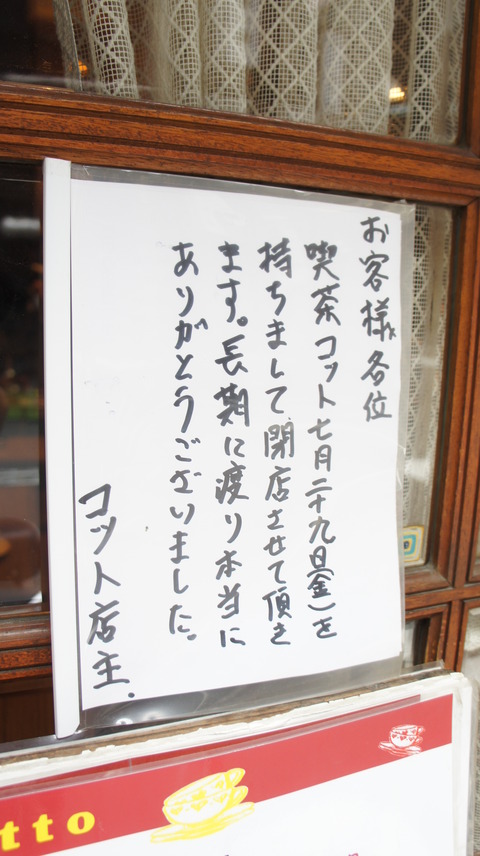 お客様各位
喫茶コット七月二十九日(金)を
持ちまして閉店させて頂き
ます。長期に渡り本当に
ありがとうございました。
コット店主.
tto